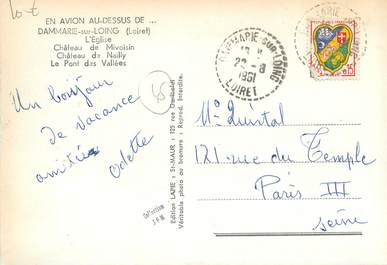 EN AVION AU-DESSUS DE ...
DAMMARIE-sur-LOING (Loiret)
L'Eglise
Château de Mivoisin
Château de Nailly
Le Pont des Vallées
Un bonjour
de vacance
amitiés
Odette
45
Edition LAPIE : St-MAUR : 125 rue Gambetta
Véritable photo au bromure : Reprod. Interdite.
Collection
J P M
DAMMARIE-SUR-LOING
22-8
1961
LOIRET
0,15
Mr Quintal
121 rue du Temple
Paris III
Seine